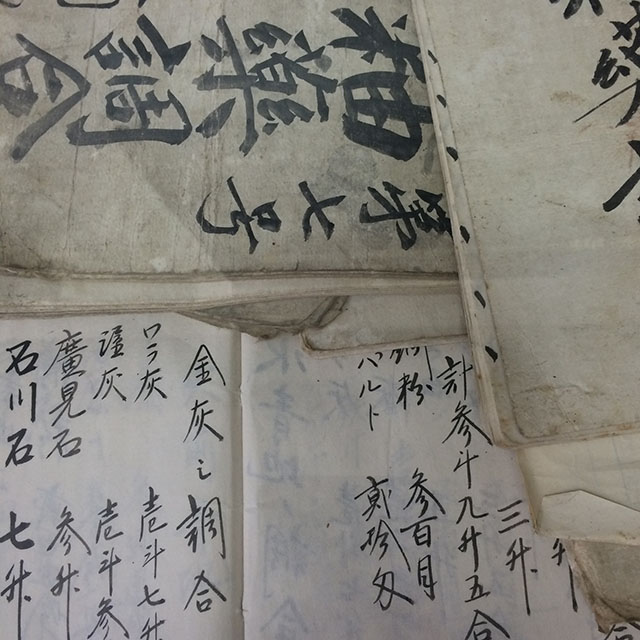 釉藥調合
第七号
升
三升
計参斗九升五合
粉 参百目
バルト 貳拾匁
金灰之調合
灰 壱斗七升
灰 壱斗参
廣見石 参升
石川石 七升